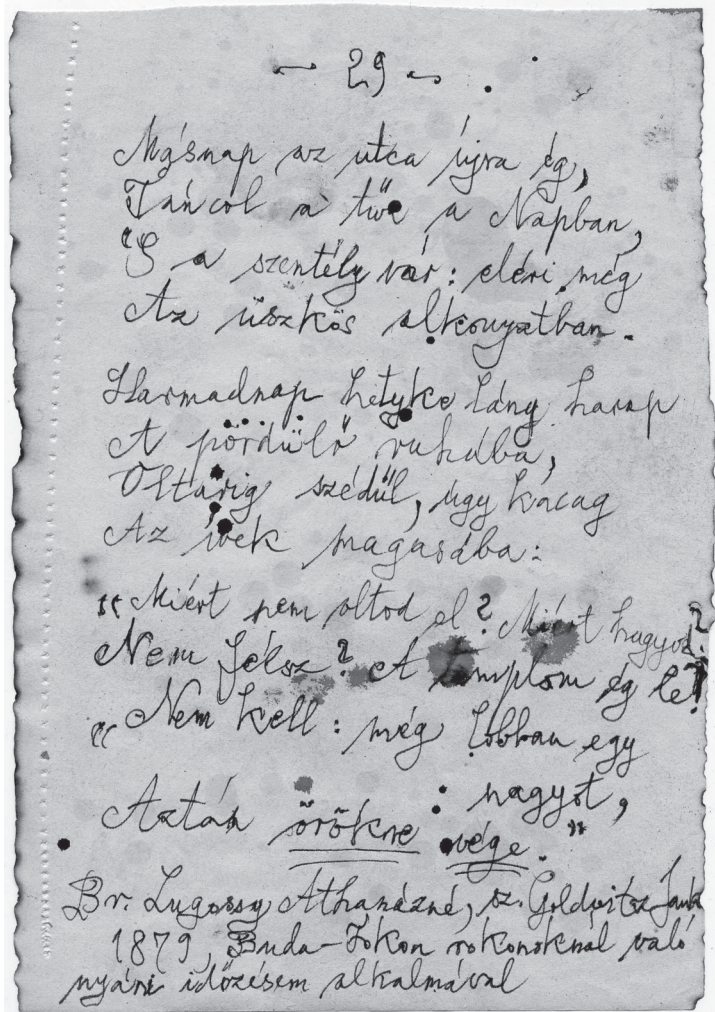 29
Másnap az utca újra ég,
Táncol a tűz a Napban,
S a szentély vár: eléri még
Az üszkös alkonyatban.
Harmadnap hetyke láng harap
A pördülő ruhába,
Oltárig szédül, úgy kacag
Az ívek magasába:
„Miért nem oltod el? Miért hagyod?
Nem félsz? A templom ég le!
„Nem kell: még lobban egy
nagyot,
Aztán örökre vége."
Br. Lugossy Athanázné, sz. Goldvitsz
1879, Buda-Fokon rokonoknál való
nyári időzésem alkalmával